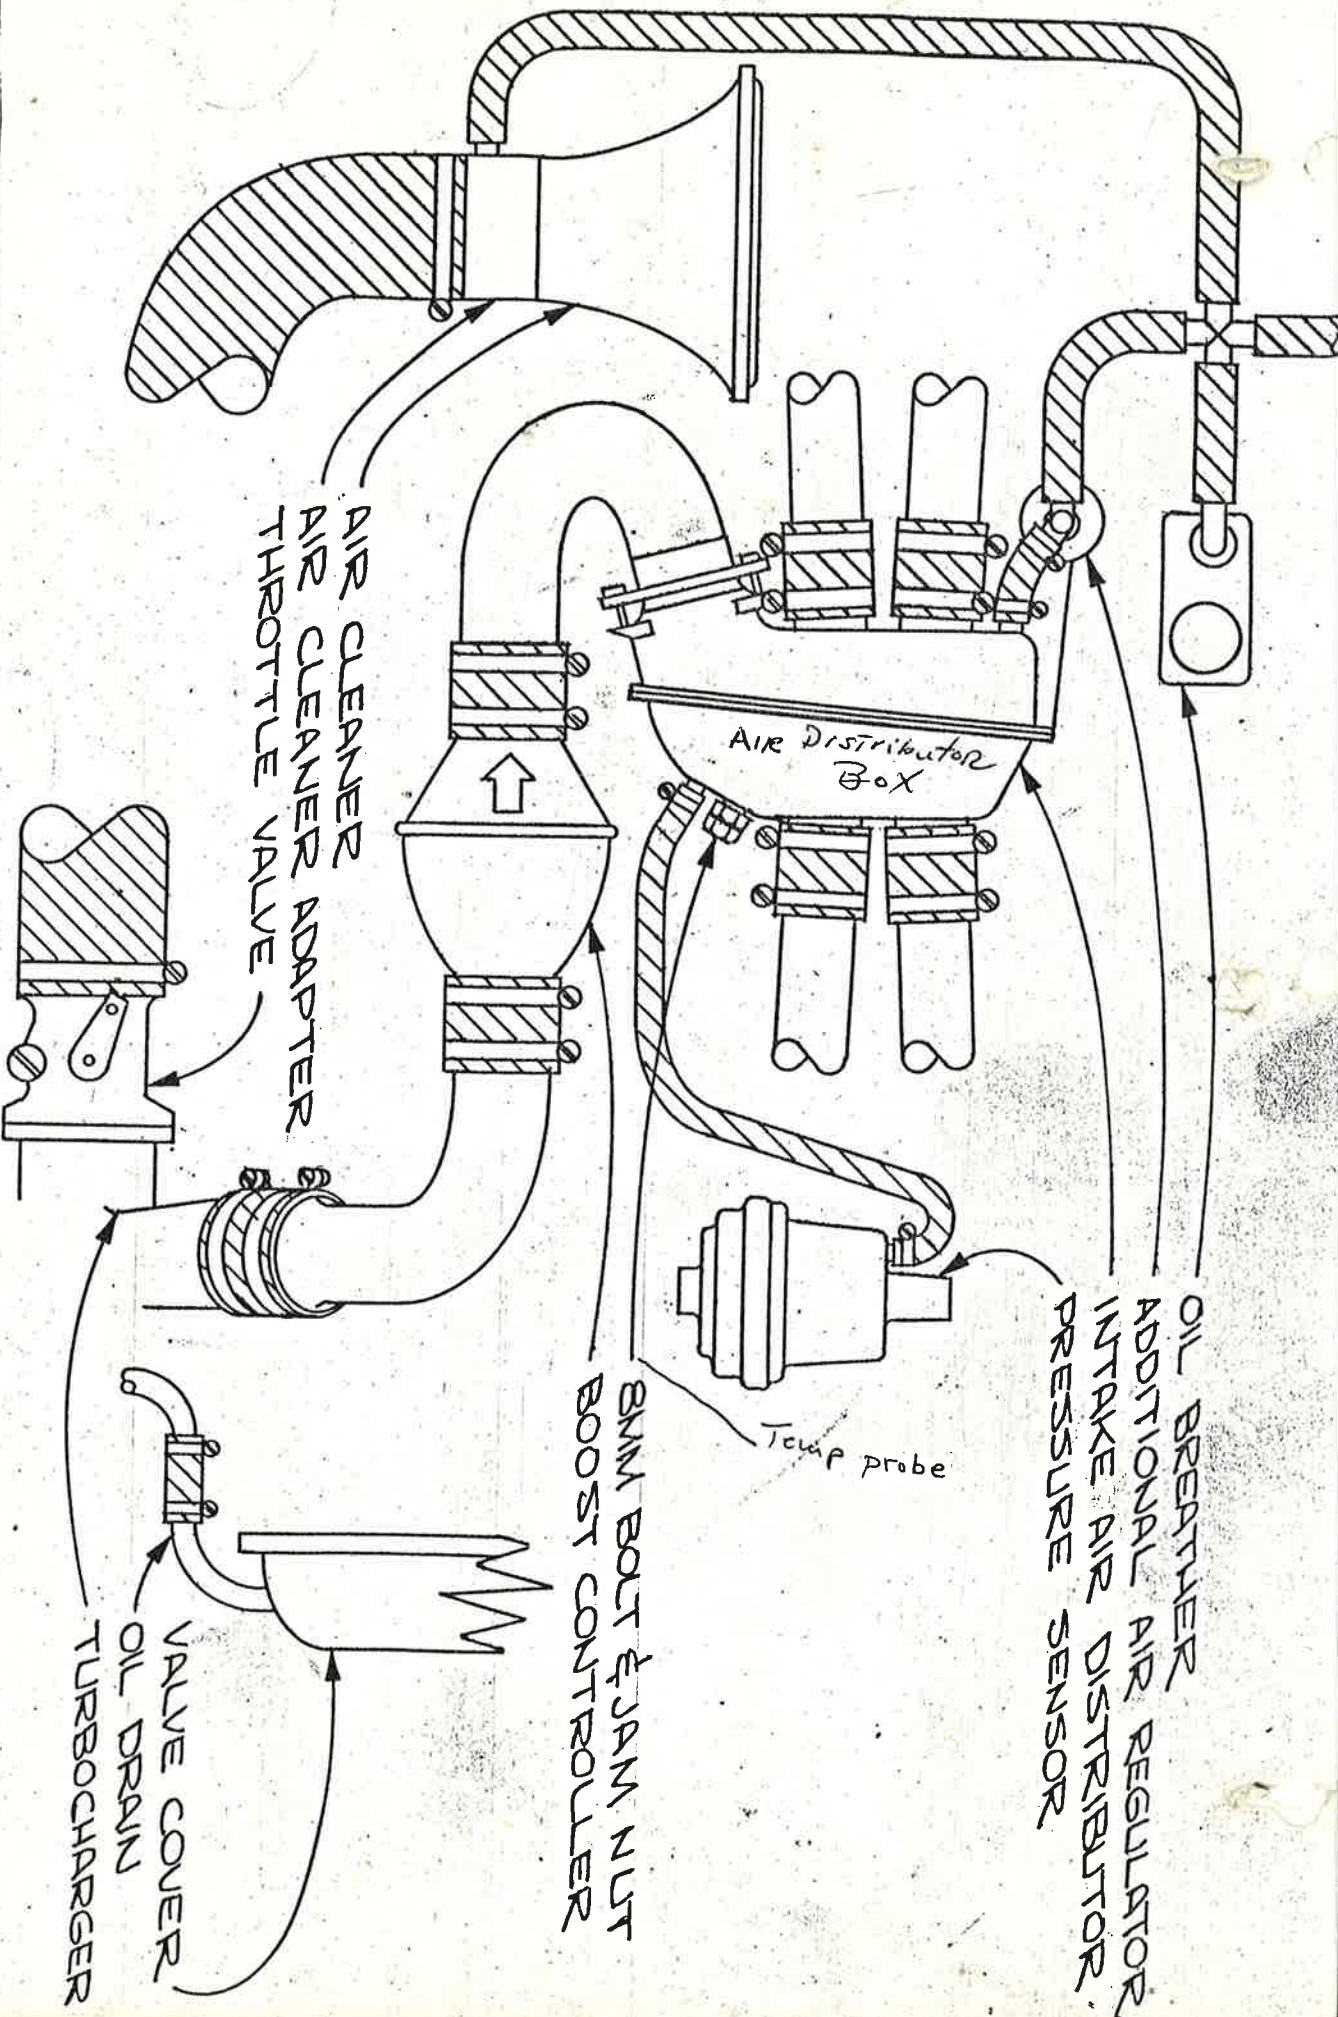 OIL BREATHER
ADDITIONAL AIR REGULATOR
INTAKE AIR DISTRIBUTOR
PRESSURE SENSOR
Air Distributor
Box
Temp probe
8MM BOLT & JAM NUT
BOOST CONTROLLER
AIR CLEANER
AIR CLEANER ADAPTER
THROTTLE VALVE
VALVE COVER
OIL DRAIN
TURBOCHARGER